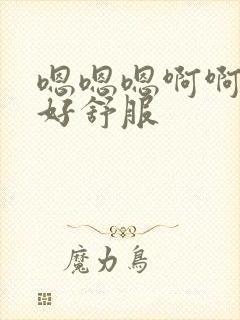 嗯嗯嗯啊啊
好舒服
魔力鸟